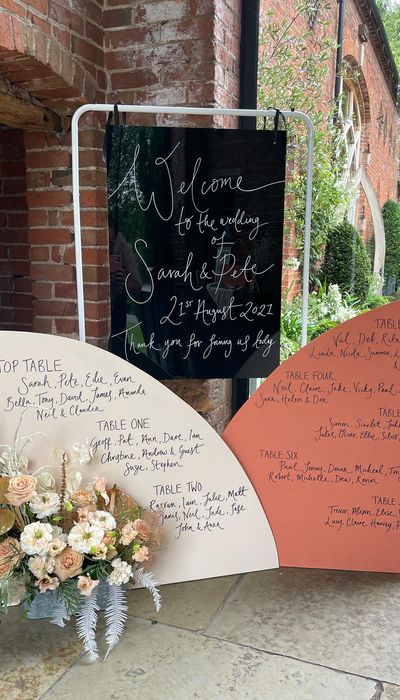 Welcome
to the wedding
of
Sarah & Pete
21st August 2021
Thank you for joining us today
TOP TABLE
Sarah, Pete, Edie, Evan
Bella, Tony, David, James, Amanda
Neil & Claudia
TABLE ONE
Geoff, Pat, Alan, Dave, Ian
Christine, Andrew & Guest
Suzie, Stephen
TABLE TWO
Iain, Julie, Matt
James, Neil, Jude,
John & Ann
TABLE
Val, Deb,
Linda, Nicola, Summer,
TABLE FOUR
Neil, Claire, Jake, Vicky, Paul
Sara, Helen & Dan
TABLE
Simon, Scarlet,
Jules, Oliver, Ellie,
TABLE SIX
Paul, Jenny, Donna, Micheal,
Robert, Michelle, Dew, Kevin
TABLE
Trevor, Alison, Elise,
Lucy, Claire, Harvey,